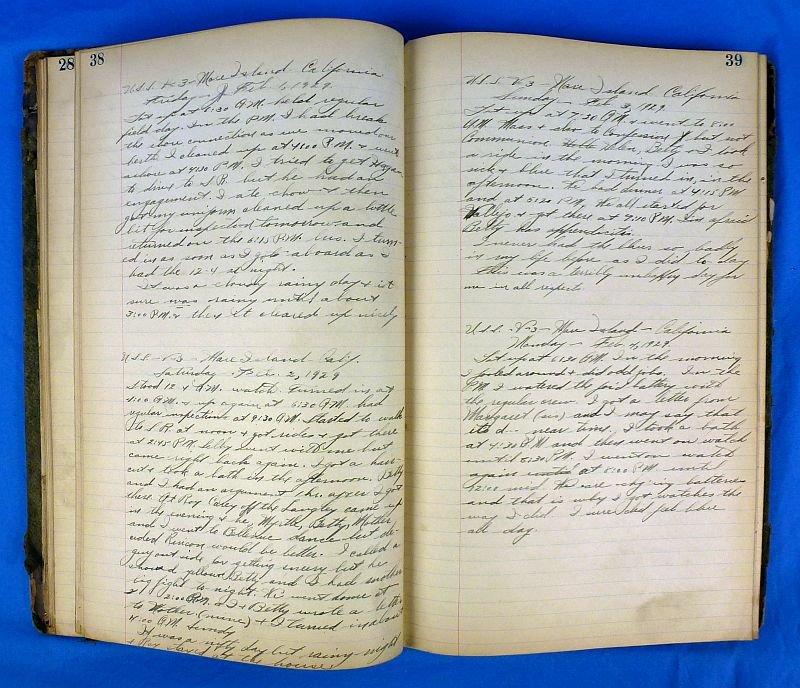 28
38
U.S.S. V-3 - Mare Island California
Friday - Feb. 1, 1929.
Got up at 6:30 A.M. held regular
field day. In the P.M. I had break
the shore connection as we moved our
berth. I cleaned up at 4:00 P.M. & went
ashore at 4:30 P.M. I tried to get Hogan
to drive to S.R. but he had an
engagement. I ate chow & then
got my uniform cleaned up a little
bit for inspection tomorrow and
returned on the 6:15 P.M. bus. I turn-
ed in as soon as I got aboard as I
had the 12-4 at night.
It was a cloudy rainy day & it
sure was rainy until about
3:00 P.M. & then it cleared up nicely
U.S.S. - V-3 - Mare Island Calif.
Saturday - Feb. 2, 1929
Stood 12-4 A.M. watch. Turned in at
4:00 A.M. & up again at 6:30 A.M. had
regular inspections at 9:30 A.M. Started to walk
to S.R. at noon & got rides & got there
at 2:45 P.M. went with me but
came right back again. I got a hair-
cut & took a bath in the afternoon. Betty
and I had an argument after I got
there. Roy Carey off the Langley came up
in the evening & he, Myrtle, Betty, Mother
and I went to Bellevue dance but de-
cided Rincon would be better. I called a
guy outside for getting and but he
showed yellow. Betty and I had another
big fight to night. We went home at
2:00 A.M. & I & Betty wrote a letter
to Mother (mine) & I turned in about
4:00 A.M. Sunday
It was a day but rainy night
& Roy stayed at the house.
39
U.S.S. V-3 Mare Island California
Sunday - Feb. 3, 1929.
Got up at 7:30 A.M. & went to 8:00
A.M. Mass & also to Confession but not
Communion. Helen, Betty & I took
a ride in the morning. I was so
sick & blue that I turned in, in the
afternoon. We had dinner at 4:15 P.M.
and at 5:20 P.M. we all started for
Vallejo & got there at 7:10 P.M. I'm afraid
Betty has appendicitis.
I never had the blues so badly
in my life before as I did to day
This was a terribly unhappy day for
me in all respects
U.S.S. - V-3 - Mare Island - California
Monday - Feb. 4, 1929.
Got up at 6:30 A.M. In the morning
I fooled around & did odd jobs. In the
P.M. I watered the fwd battery with
the regular crew. I got a letter from
Margaret (sis) and I may say that
its d- near time. I took a bath
at 4:30 P.M. and then went on watch
until 5:30 P.M. I went on watch
again at 8:00 P.M. until
12:00 mid. We are charging batteries
and that is why I got watches the
way I did. I sure did feel blue
all day.